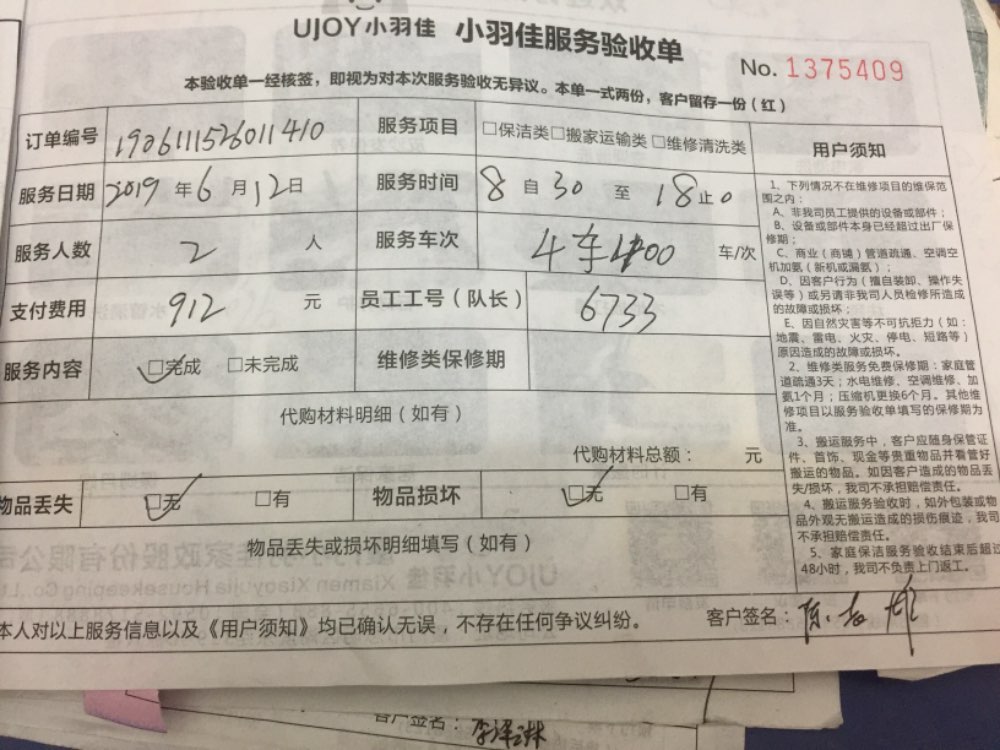 UJOY小羽佳 小羽佳服务验收单
No. 1375409
本验收单一经核签，即视为对本次服务验收无异议。本单一式两份，客户留存一份（红）
订单编号 190611152601​1410 服务项目 □保洁类□搬家运输类□维修清洗类
服务日期 2019年6月12日 服务时间 8自30至18止0
服务人数 2人 服务车次 4车400车/次
支付费用 912元 员工工号（队长） 6733
服务内容 □完成 □未完成 维修类保修期
代购材料明细（如有）
代购材料总额： 元
物品丢失 □无 □有 物品损坏 □无 □有
物品丢失或损坏明细填写（如有）
用户须知
1、下列情况不在维修项目的维保范
围之内：
A、非我司员工提供的设备或部件；
B、设备或部件本身已经超过出厂保
修期；
C、商业（商铺）管道疏通、空调空
机加氨（新机或漏氨）；
D、因客户行为（擅自装卸、操作失
误等）或另请非我司人员检修所造成
的故障或损坏；
E、因自然灾害等不可抗拒力（如：
地震、雷电、火灾、停电、短路等）
原因造成的故障或损坏。
2、维修类服务免费保修期：家庭管
道疏通3天；水电维修、空调维修、加
氨1个月；压缩机更换6个月。其他维
修项目以服务验收单填写的保修期为
准。
3、搬运服务中，客户应随身保管证
件、首饰、现金等贵重物品并看管好
搬运的物品。如因客户造成的物品丢
失/损坏，我司不承担赔偿责任。
4、搬运服务验收时，如外包装或物
品外观无搬运造成的损伤痕迹，我司
不承担赔偿责任。
5、家庭保洁服务验收结束后超过
48小时，我司不负责上门返工。
本人对以上服务信息以及《用户须知》均已确认无误，不存在任何争议纠纷。 客户签名：陈
客户签名：李泽琳